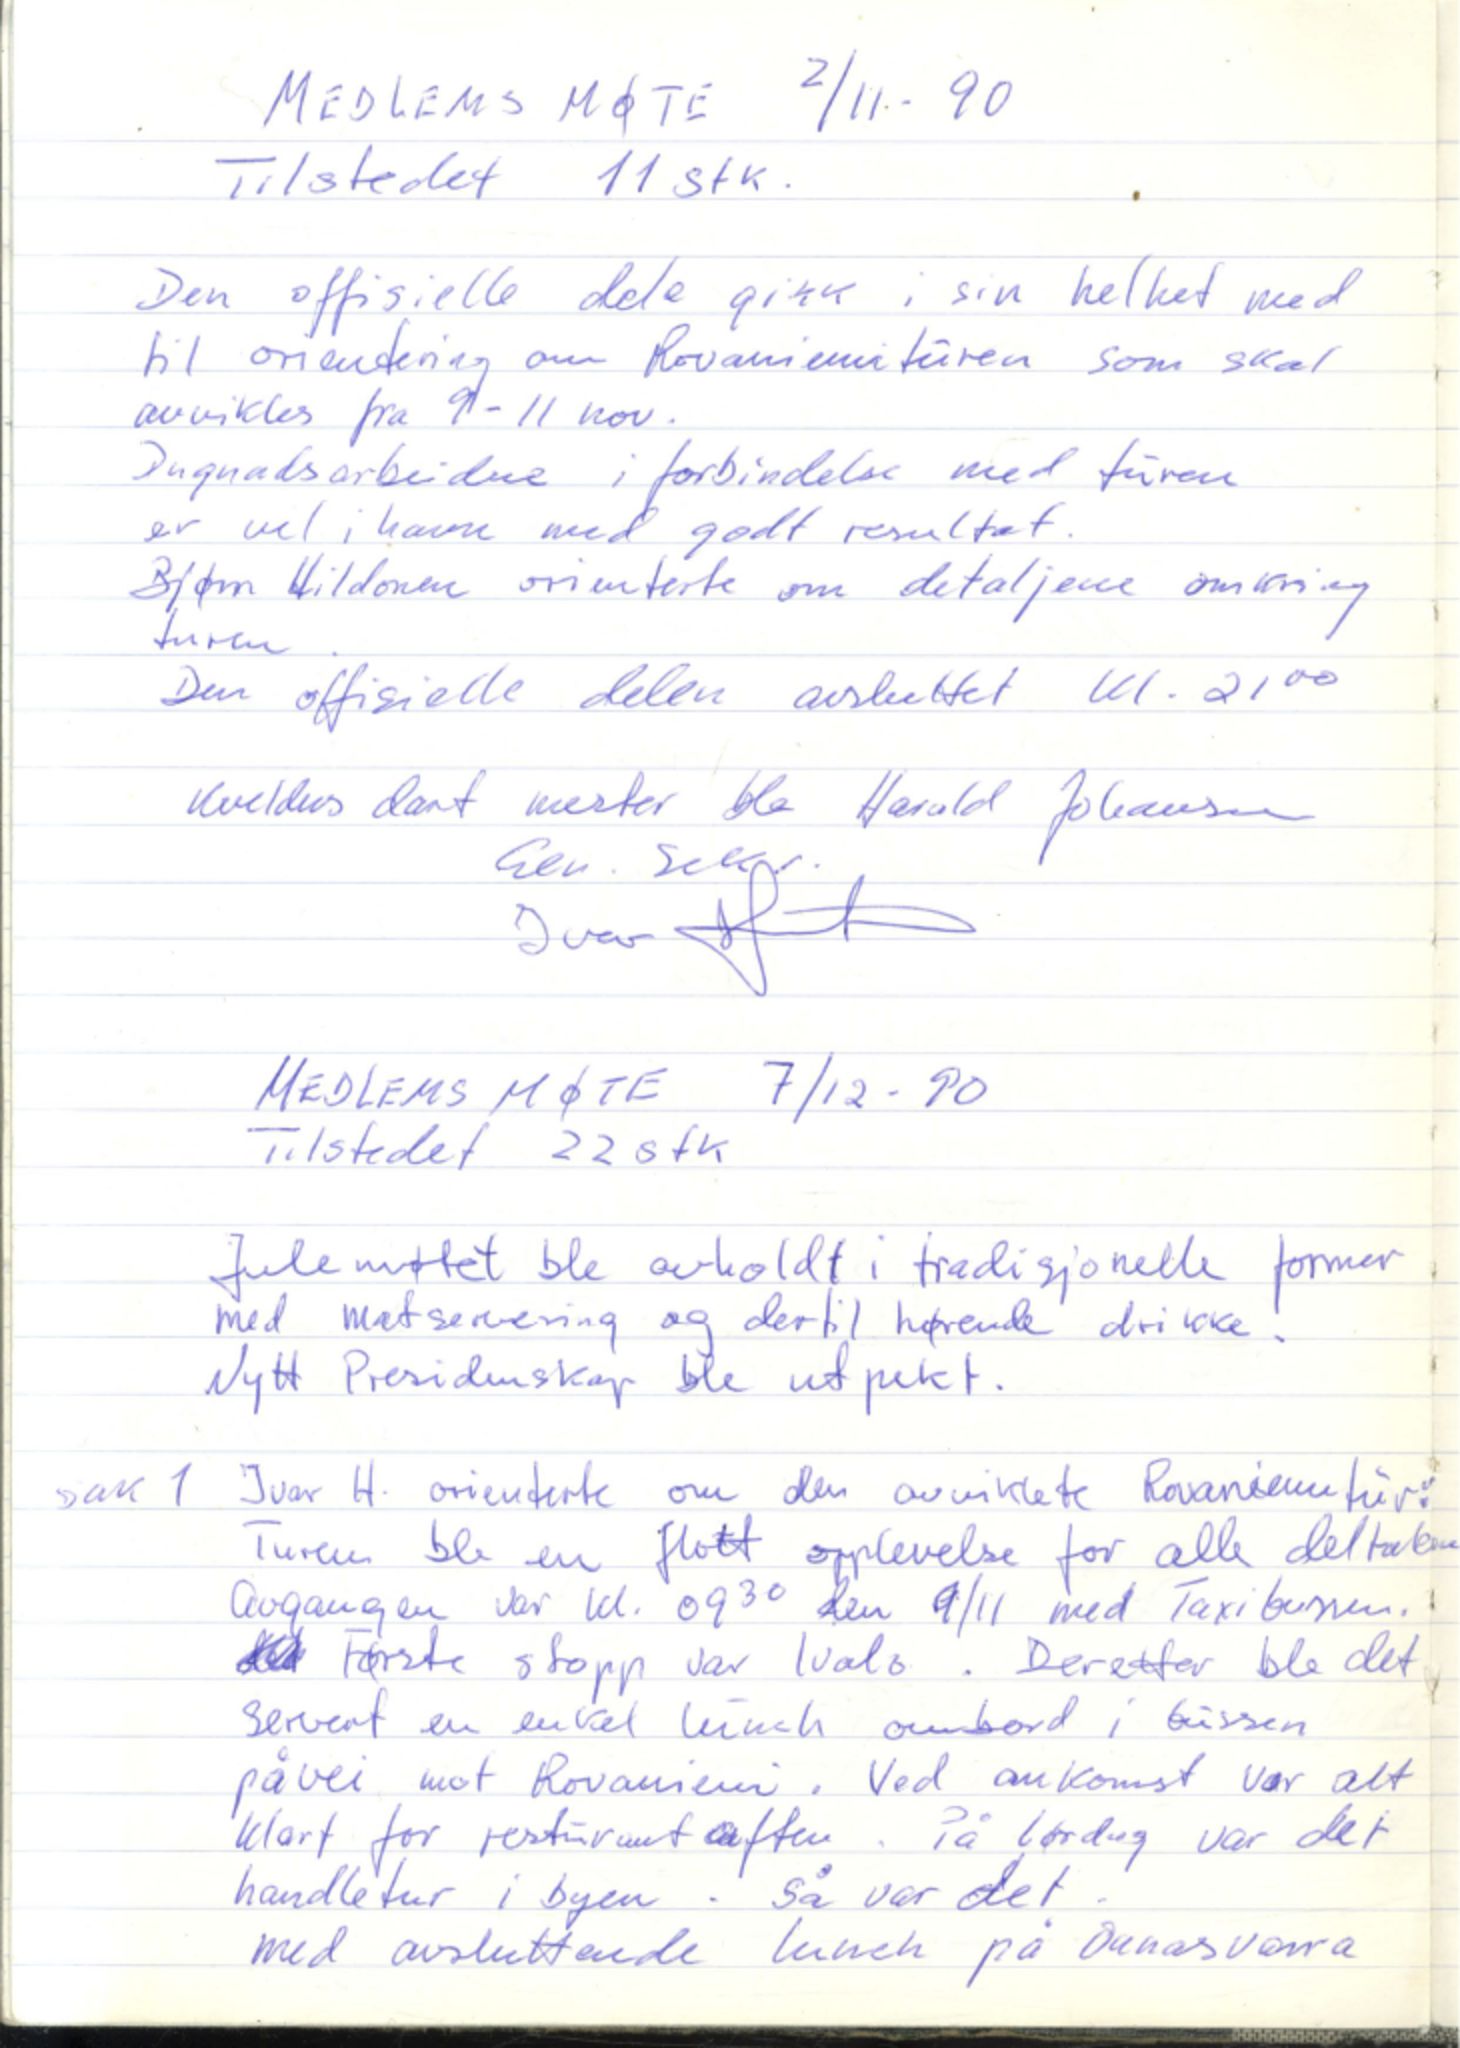 MEDLEMS MØTE 2/11-90
Tilstedet 11 stk.
Den offisielle dele gikk i sin helhet med
til orientering om Rovaniemitŭren som skal
avvikles fra 9-11 nov.
Dugnadsarbeidne i forbindelse med tŭren
er vel i havn med godt resultat.
Bjørn Hildonen orienterte om detaljene omkring
turen.
Den offisielle delen avsluttet kl. 21⁰⁰
Kveldens dart mester ble Harald Johansen
Gen. Sekr.
Ivar
MEDLEMS MØTE 7/12-90
Tilstedet 22 stk
Julemøtet ble avholdt i tradisjonelle former
med matservering og dertil hørende drikke.
Nytt Presidenskap ble utpekt.
sak 1 Ivar H. orienterte om den avviklete Rovaniemitŭr:
Turen ble en flott opplevelse for alle deltaken
Avgangen var kl. 09³⁰ den 9/11 med Taxibussen.
Første stopp var Ivalo. Deretter ble det
servert en enkel lŭnch ombord i bŭssen
påvei mot Rovaniemi. Ved ankomst var alt
klart for restŭrant aften. På lørdag var det
handletur i byen. Så var det.
med avsluttende lunch på Ounasvarra